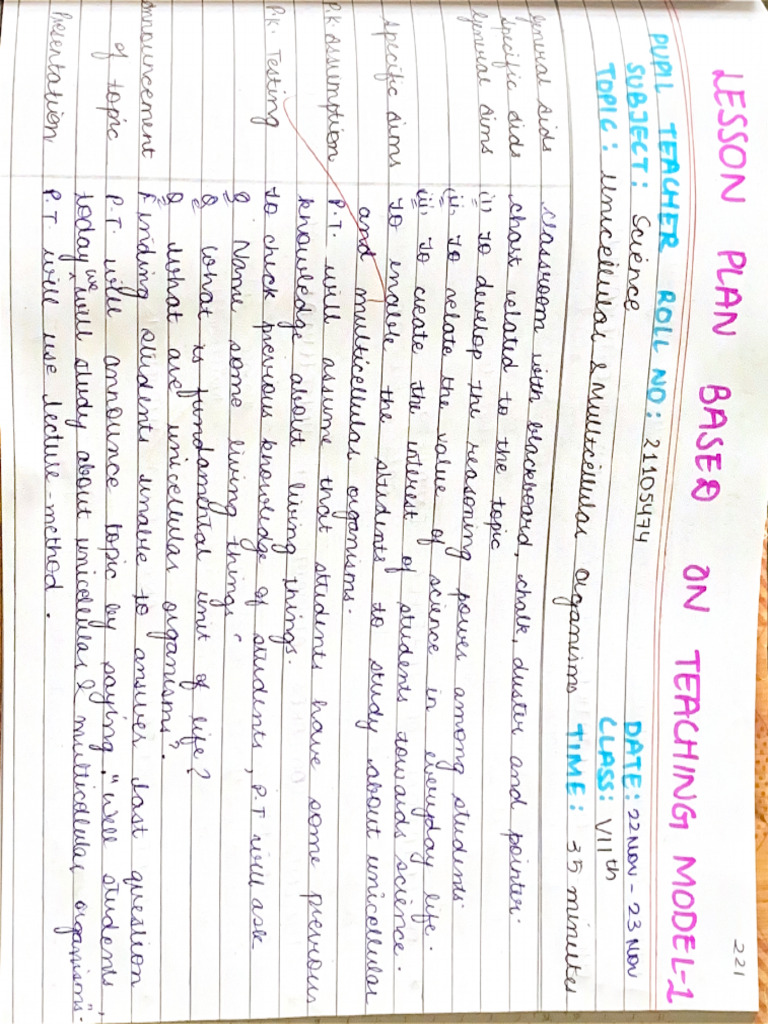 221
LESSON PLAN BASED ON TEACHING MODEL-1
PUPIL TEACHER ROLL NO: 21105474 DATE: 22 Nov - 23 Nov
SUBJECT: Science CLASS: VIIth
TOPIC: Unicellular & Multicellular organisms TIME: 35 minutes
General aids classroom with blackboard, chalk, duster and pointer.
Specific aids chart related to the topic
General aims (i) To develop the reasoning power among students.
(ii) To relate the value of science in everyday life.
(iii) To create the interest of students towards science.
Specific aims To enable the students to study about unicellular
and multicellular organisms.
P.K Assumption P.T. will assume that students have some previous
knowledge about living things.
P.K. Testing To check previous knowledge of students, P.T will ask
Q. Name some living things?
Q What is fundamental unit of life?
Q What are unicellular organisms?
Announcement Finding students unable to answer last question
of topic P.T. will announce topic by saying, "Well students,
today we will study about unicellular & multicellular organisms".
Presentation P.T. will use lecture-method.